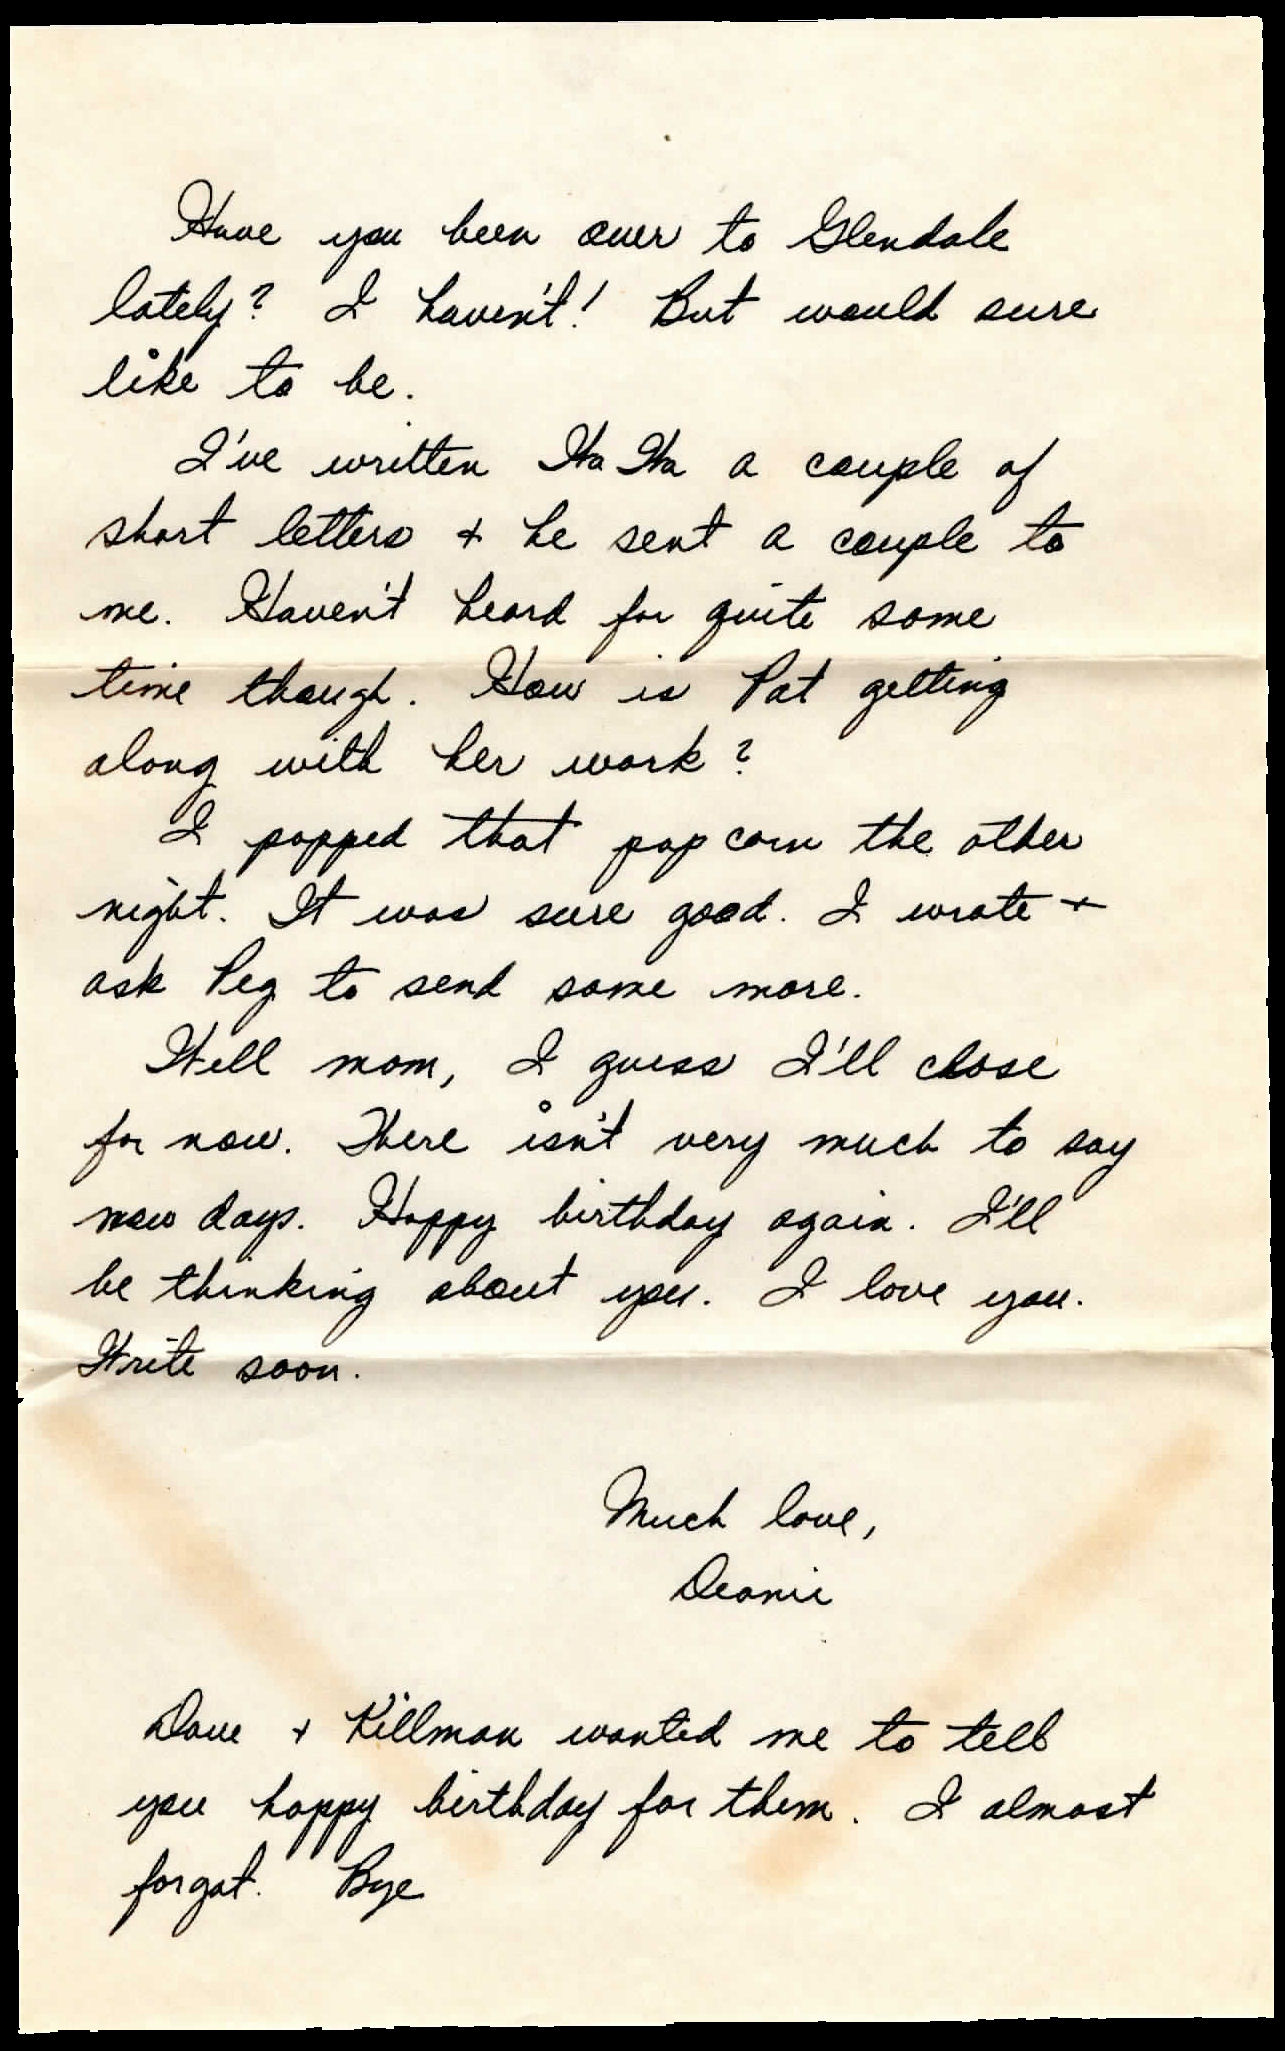 Have you been over to Glendale
lately? I haven't! But would sure
like to be.
I've written Wa Wa a couple of
short letters + he sent a couple to
me. Haven't heard for quite some
time though. How is Pat getting
along with her work?
I popped that pop corn the other
night. It was sure good. I wrote +
ask Peg to send some more.
Well mom, I guess I'll close
for now. There isn't very much to say
now days. Happy birthday again. I'll
be thinking about you. I love you.
Write soon.
Much love,
Deanie
Dave + Killman wanted me to tell
you happy birthday for them. I almost
forgot. Bye